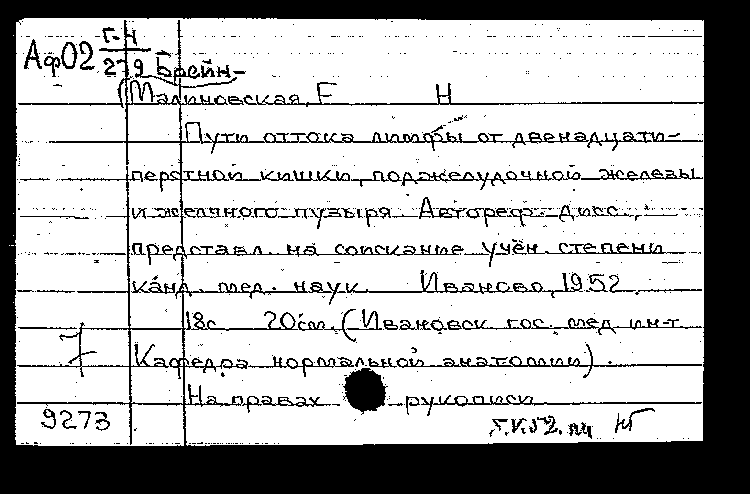 Аф02 Г-Н
279 Брейн-
Малиновская, Е Н
Пути оттока лимфы от двенадцати-
перстной кишки, поджелудочной железы
и желчного пузыря. Автореф. дисс.,
представл. на соискание учён. степени
канд. мед. наук. Иваново, 1952.
18с 20см. (Ивановск гос. мед ин-т.
Кафедра нормальной анатомии).
7
На правах рукописи
9273